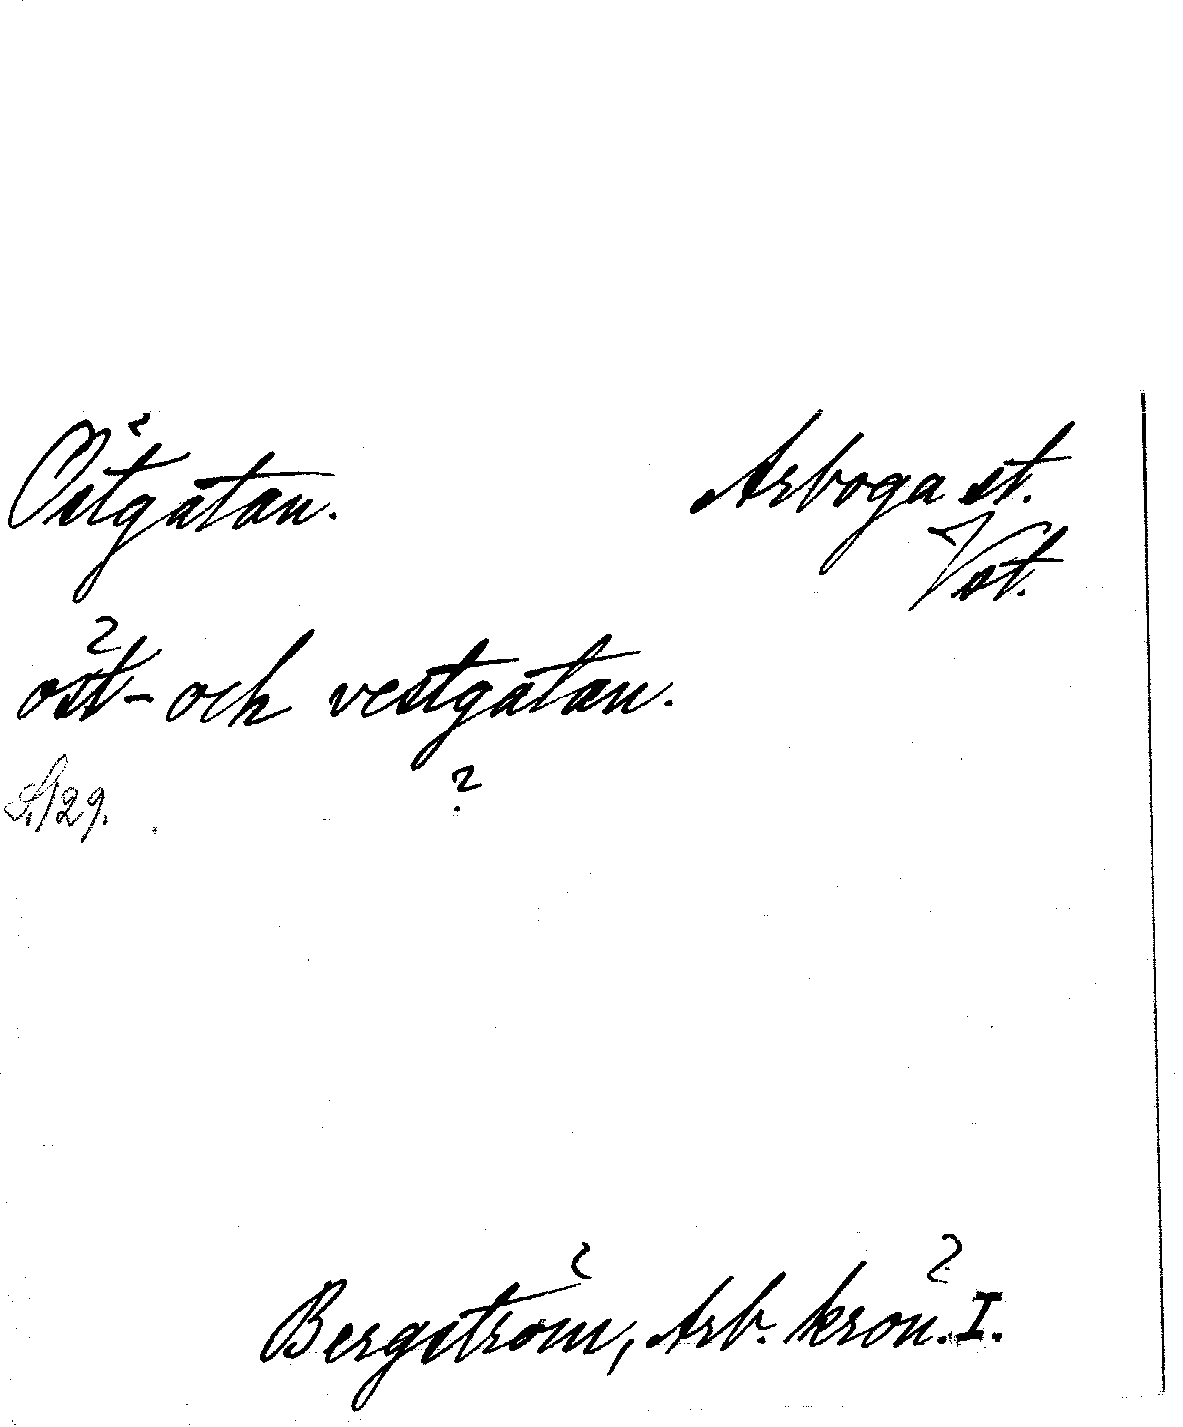 Östgatan. Arboga st.
Vst.
öst- och vestgatan.
S. 129. ?
Bergström, Arb. krön. I.